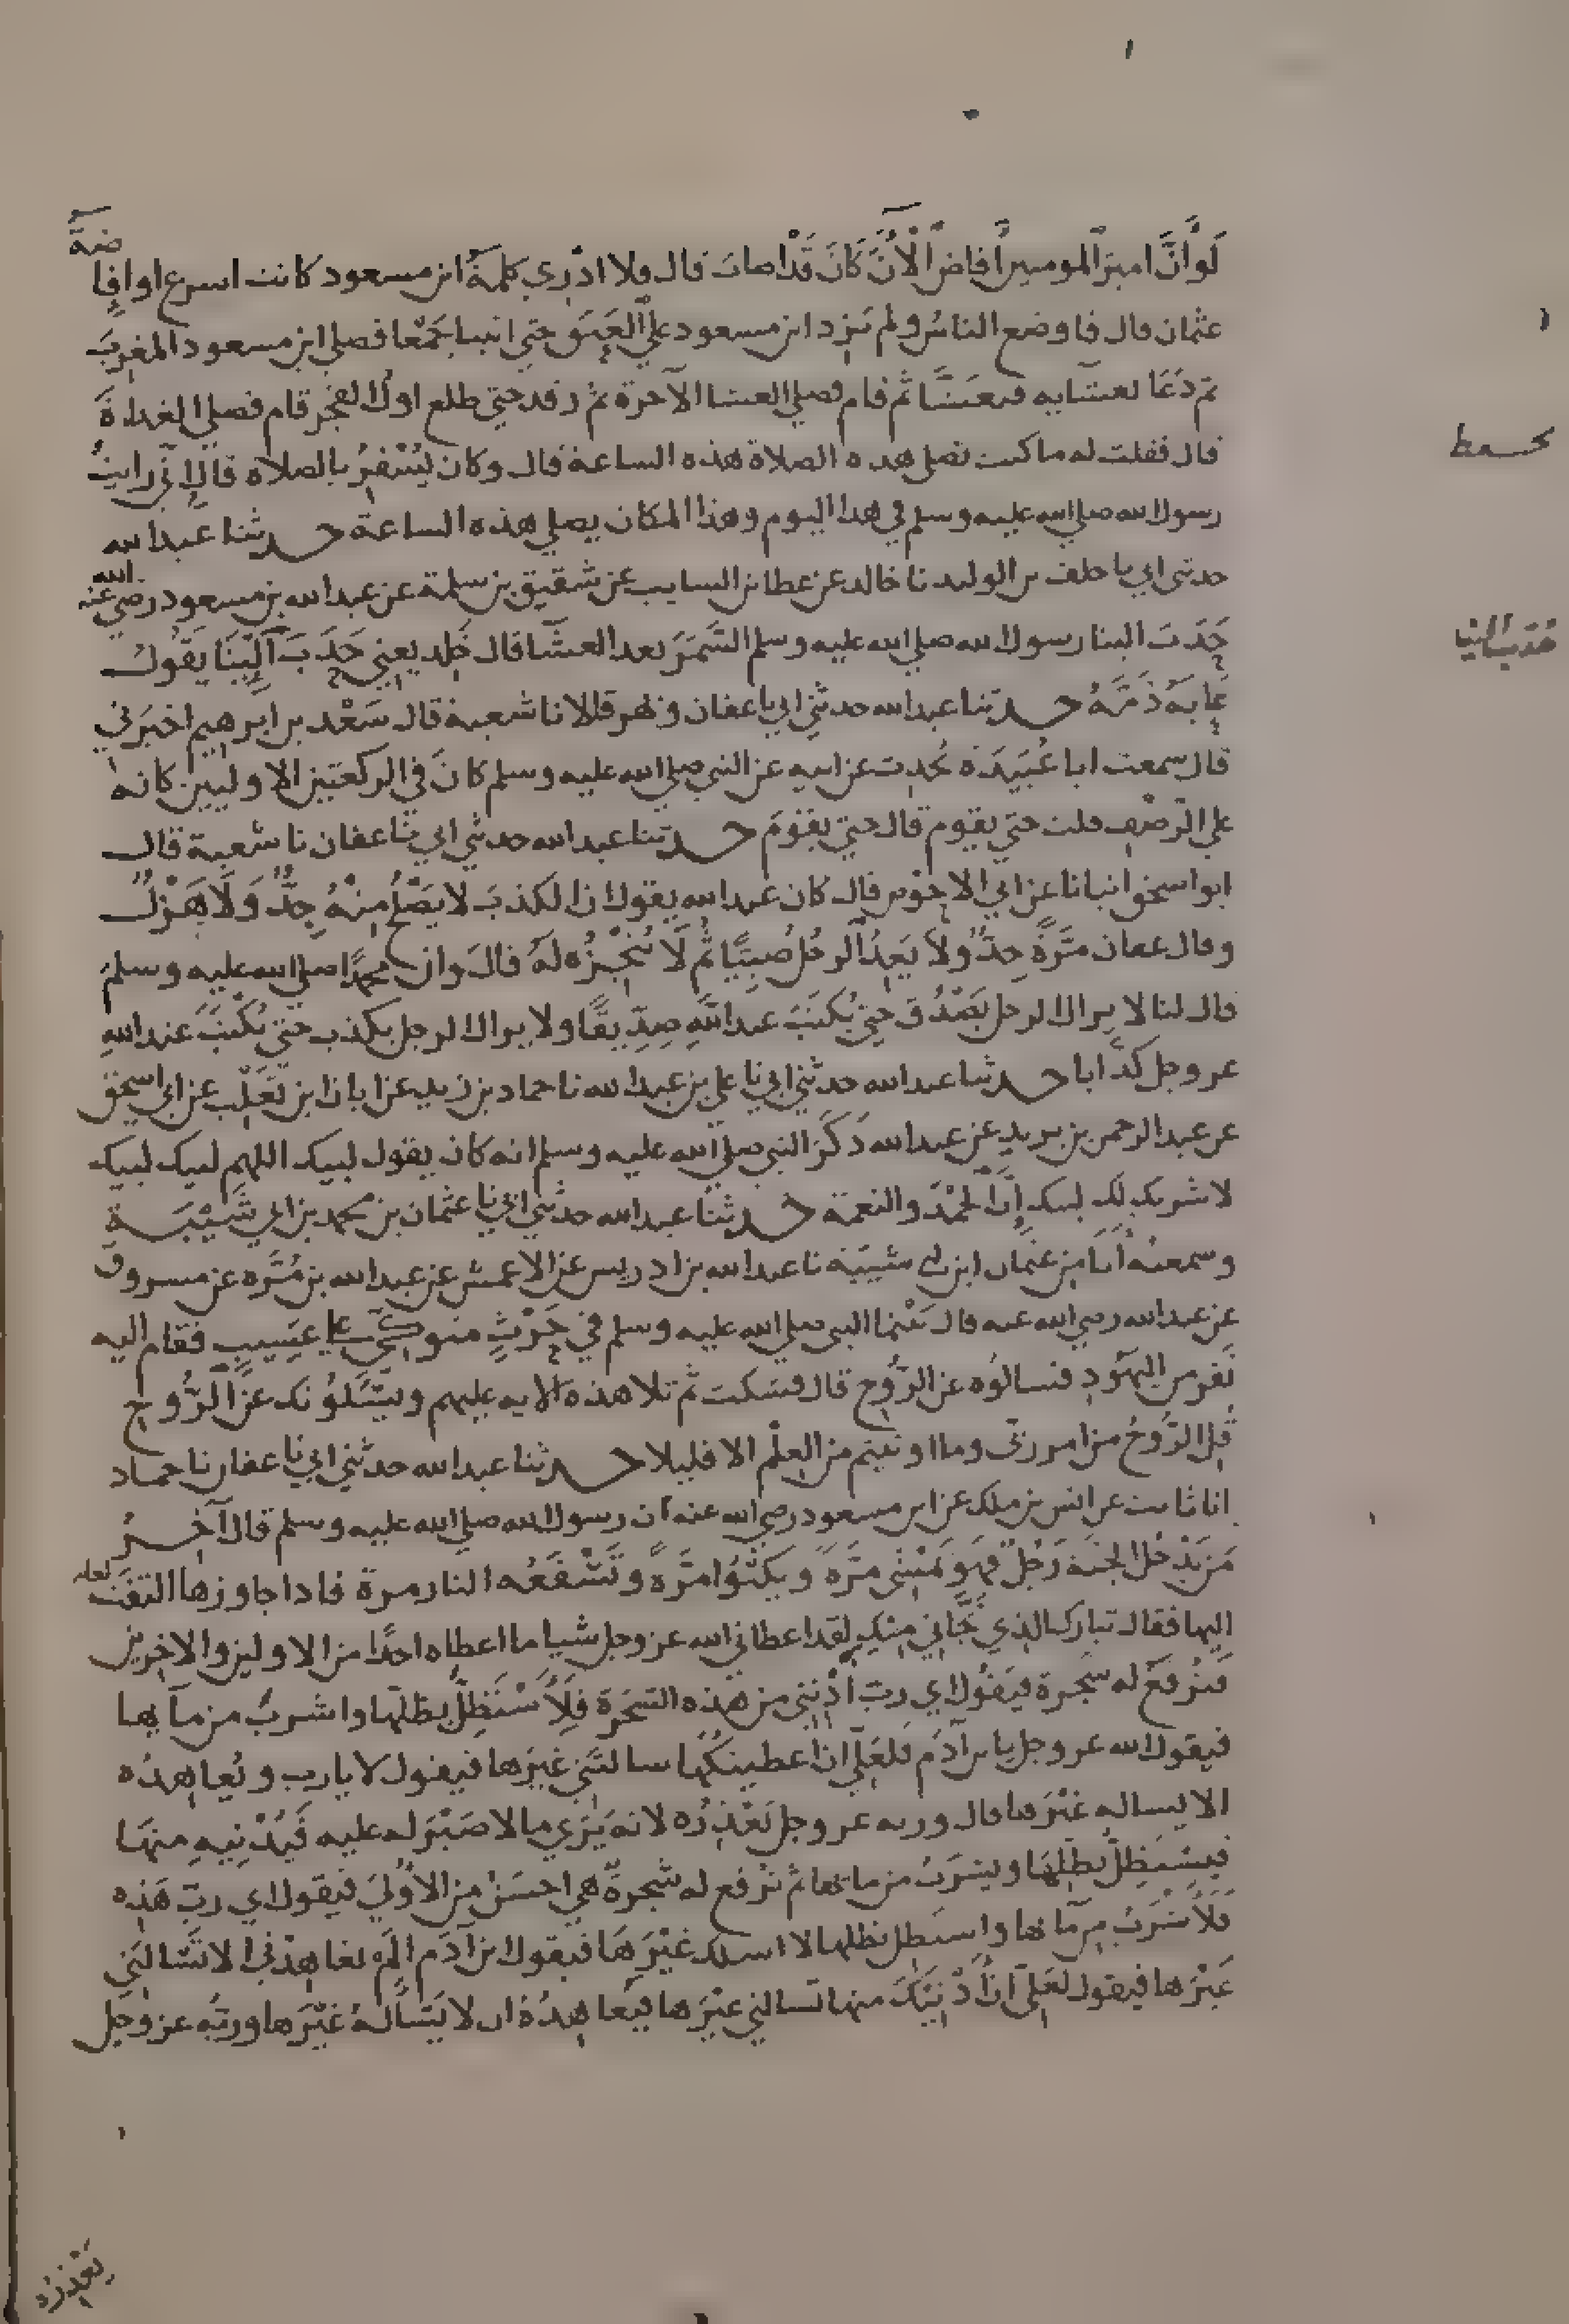 لَوْ أنَّ امير المومنين أفاض الْآنَ كَانَ قَدْ اصاب قال فلا ادري كلمةُ ابن مسعود كانت اسرع او افاضة
عثمان قال فاوضع الناسُ ولم يَزِد ابن مسعود على العَنَق حتى اتينا جَمْعًا فصلى ابن مسعود المغربَ
ثم دَعَا بعشايه فتعَشَّا ثم قام فصلى العشا الآخرة ثم رقد حتى طلع اولُ الفجر قام فصلى الغداةَ
قال فقلت له ما كنت تصلي هذه الصلاة هذه الساعة قال وكان يُسْفِرُ بالصلاه قال إنّي رايتُ
رسول الله صلى الله عليه وسلم في هذا اليوم وهذا المكان يصلي هذه الساعة حدثنا عبد الله
حدثني ابي نا خلف بن الوليد نا خالد عن عطا بن السايب عن شقيق بن سلمة عن عبد الله بن مسعود رضي الله عنه
جَدَبَ الينا رسول الله صلى الله عليه وسلم السَّمَرَ بعد العشا قال خلد يعني جَدَبَ الَيْنَا يَقُول
عَابَهُ ذَمَّهُ حدثنا عبد الله حدثني ابي نا عفان وبهر قالا نا شعبة قال سَعْد بن ابرهيم اخبرني
قال سمعت ابا عُبَيدَة يُحدث عن ابيه عن النبي صلى الله عليه وسلم كانَ في الركعتين الاوليين كانه
على الرَّضْفِ قلت حتى يقوم قال حتى يقومَ حدثنا عبد الله حدثني ابي ثنا عفان نا شعبة قال
ابو اسحق انبانا عن ابي الاحوص قال كان عبد الله يقول ان الكذبَ لا يَصْلُح مِنْهُ جِدٌّ وَلَا هَزْلٌ
وقال عفان مَرَّةً جِدٌّ ولا يَعِدُ الرجُلُ صَبِيًّا ثُم لَا يُنْجِزُه لَهُ قال وان محمدًا صلى الله عليه وسلم
قال لنا لا يزال الرجل يَصْدُق حتى يُكتبَ عند اللَّهِ صِدِّيقًا ولا يزال الرجل يكذب حتى يُكْتبَ عند الله
عز وجل كذَّابا حدثنا عبد الله حدثني ابي نا علي بن عبد الله نا حماد بن زيد عن ابان بن تَغْلِب عن ابي اسحق
عن عبد الرحمن بن يزيد عن عبد الله ذَكَرَ النبي صلى الله عليه وسلم انه كان يقول لبيك اللهم لبيك لبيك
لا شريك لك لبيك إنّ الحَمْدَ والنعمة حدثنا عبد الله حدثني ابي نا عثمان بن محمد بن ابي شَيْبَة
وسمعته أنا من عثمان ابن ابي شيبَة نا عبد الله بن ادريس عن الاعمش عن عبد الله بن مُرَّه عن مسروق
عن عبد الله رضي الله عنه قال بَيْنما النبي صلى الله عليه وسلم في حَرْثٍ متوكئ على عسيبٍ فقام اليه
نَفر من اليهُودِ فسالوُه عن الرُّوح قال فسكت ثم تلا هذه الايه عليهم ويَسْئلوُنك عن الرُّوح
قُلِ الرُّوحُ من امر ربّي وما اوتيتم من العِلْم الا قليلا حدثنا عبد الله حدثني ابي نا عفان نا حماد
انا ثابت عن انس بن ملك عن ابن مسعود رضي الله عنه أن رسول الله صلى الله عليه وسلم قال آخِرُ
مَن يَدْخُل الجنة رَجُلٌ فهو يَمْشي مرَّةً ويكبُوُا مرَّةً وتَسْفَعُه النار مرة فاذا جاوزها التفَت لعله
اليها فقال تبارك الذي نَجَّاني منْكِ لقد اعطاني الله عز وجل شيا ما اعطاه احدًا من الاولين والاخرين
فتُرفَعُ له شجرة فيَقُول اي ربّ أدْنِني من هذه الشجرَة فَلَأسْتَظِلّ بظلها واشربُ من مآيها
فيقول الله عز وجل يا بن آدَم فلعَلّي انْ اعطيتكُها سالتَني غيرَها فيقول لا يا رب ويُعاهِدُه
الا يساله غَيْرَها قال وربه عز وجل يَعْذِرُه لانه يَرَي ما لا صَبْرَ له عليه فَيُدْنِيهِ منها
فيسْتَظِلُّ بظِلِّهَا ويشرَبُ من مائها ثم تُرفع له شجرةٌ هي احسَنُ من الاوُليَ فيقول اي ربّ هَذِه
فَلأشْرَبُ من مآئها واستظل بظلها لا اسلك غيْرَهَا فيقول ابن آدَم ألَمْ تعاهِدْني الا تَسْالَني
غَيْرَها فيقول لعَلّي انْ أدْنَيْتُكَ منها تسالني غيْرَها فيُعاهِدُهُ ان لا يَسْألهُ غيْرَها وربُّه عز وجل
يَعْذِرُه